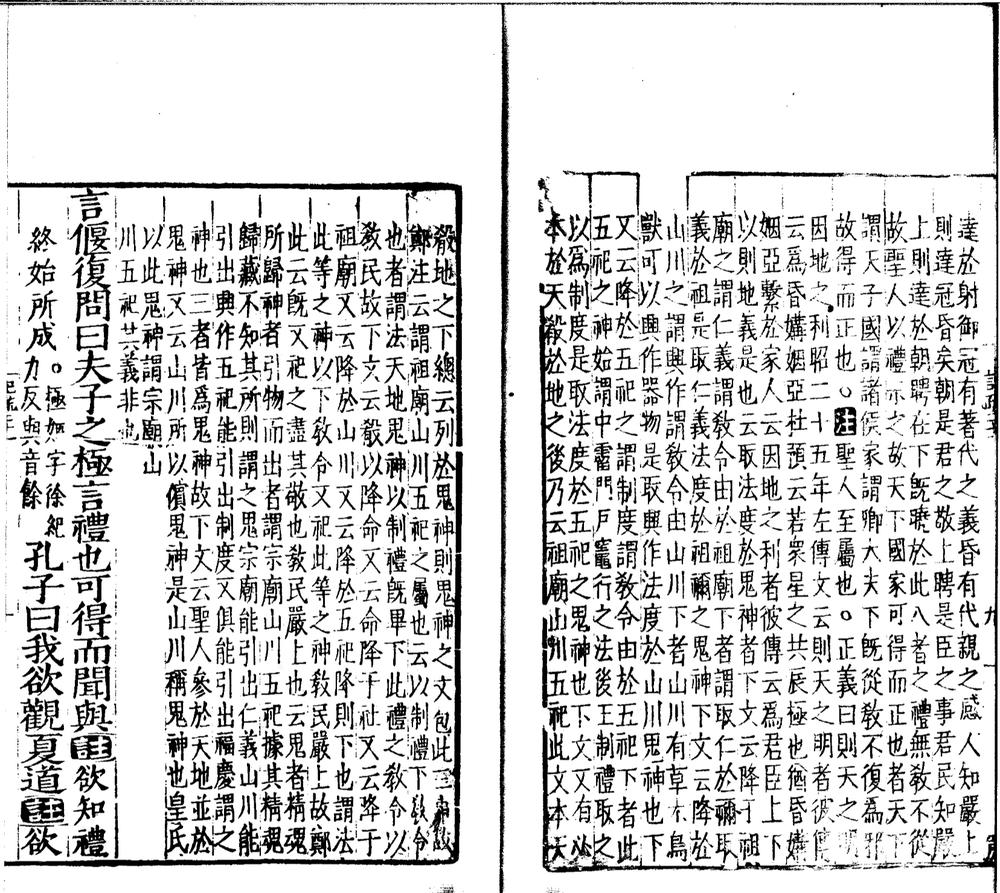 達於射御冠有著代之義昏有代親之感人知嚴上
則達冠昏矣朝是君之敬上聘是臣之事君民知嚴
上則達於朝聘在下既曉於此八者之禮無教不從
故聖人以禮示之故天下國家可得而正也者天下
謂天子國謂諸侯家謂卿大夫下既從教不復為邪
故得而正也○注聖人至屬也○正義曰則天之明
因地之利昭二十五年左傳文云則天之明者彼傳
云為昏媾姻亞杜預云若眾星之共辰極也猶昏媾
姻亞繫於家人云因地之利者彼傳云為君臣上下
以則地義是也云取法度於鬼神者下文云降於祖
廟之謂仁義謂教令由於祖廟下者謂取仁於禰取
義於祖是取仁義法度於祖禰之鬼神下文云降於
山川之謂興作謂教令由山川下者山川有草木鳥
獸可以興作器物是取興作法度於山川鬼神也下
又云降於五祀之謂制度謂教令由於五祀下者此
五祀之神始謂中霤門戶竈行之法後王制禮取之
以為制度是取法度於五祀之鬼神也下文又有必
本於天殽於地之後乃云祖廟山川五祀此文本天
殽地之下總云列於鬼神則鬼神之文包此三
鄭注云謂祖廟山川五祀之屬也云以制禮下教令
也者謂法天地鬼神以制禮既畢下此禮之教令以
教民故下文云殽以降命又云命降于社又云降于
祖廟又云降於山川又云降於五祀降則下也謂法
此等之神以下教令又祀此等之神教民嚴上故鄭
此云既又祀之盡其敬也教民嚴上也云鬼者精魂
所歸神者引物而出者謂宗廟山川五祀據其精魂
歸藏不知其所則謂之鬼宗廟能引出仁義山川能
引出興作五祀能引出制度又俱能引出福慶謂之
神也三者皆為鬼神故下文云聖人參於天地並於
鬼神又云山川所以儐鬼神是山川稱鬼神也皇氏
以此鬼神謂宗廟山
川五祀其義非也
言偃復問曰夫子之極言禮也可得而聞與註欲知禮
終始所成○極如字徐紀力反與音餘孔子曰我欲觀夏道註欲